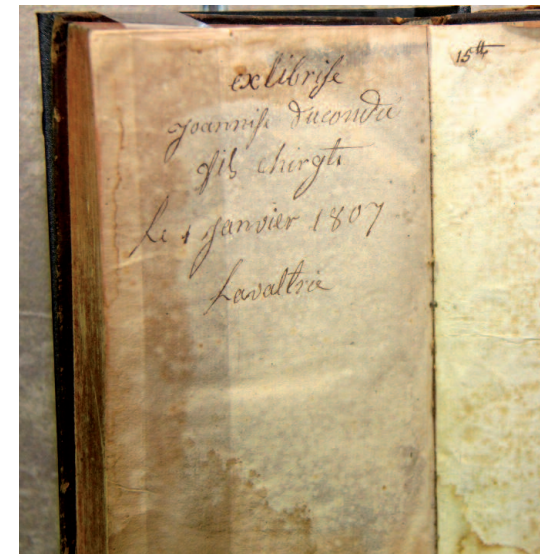 exlibrise
joannise Ducondu
fils chirgt
Le 1 janvier 1807
Lavaltrie
15tt